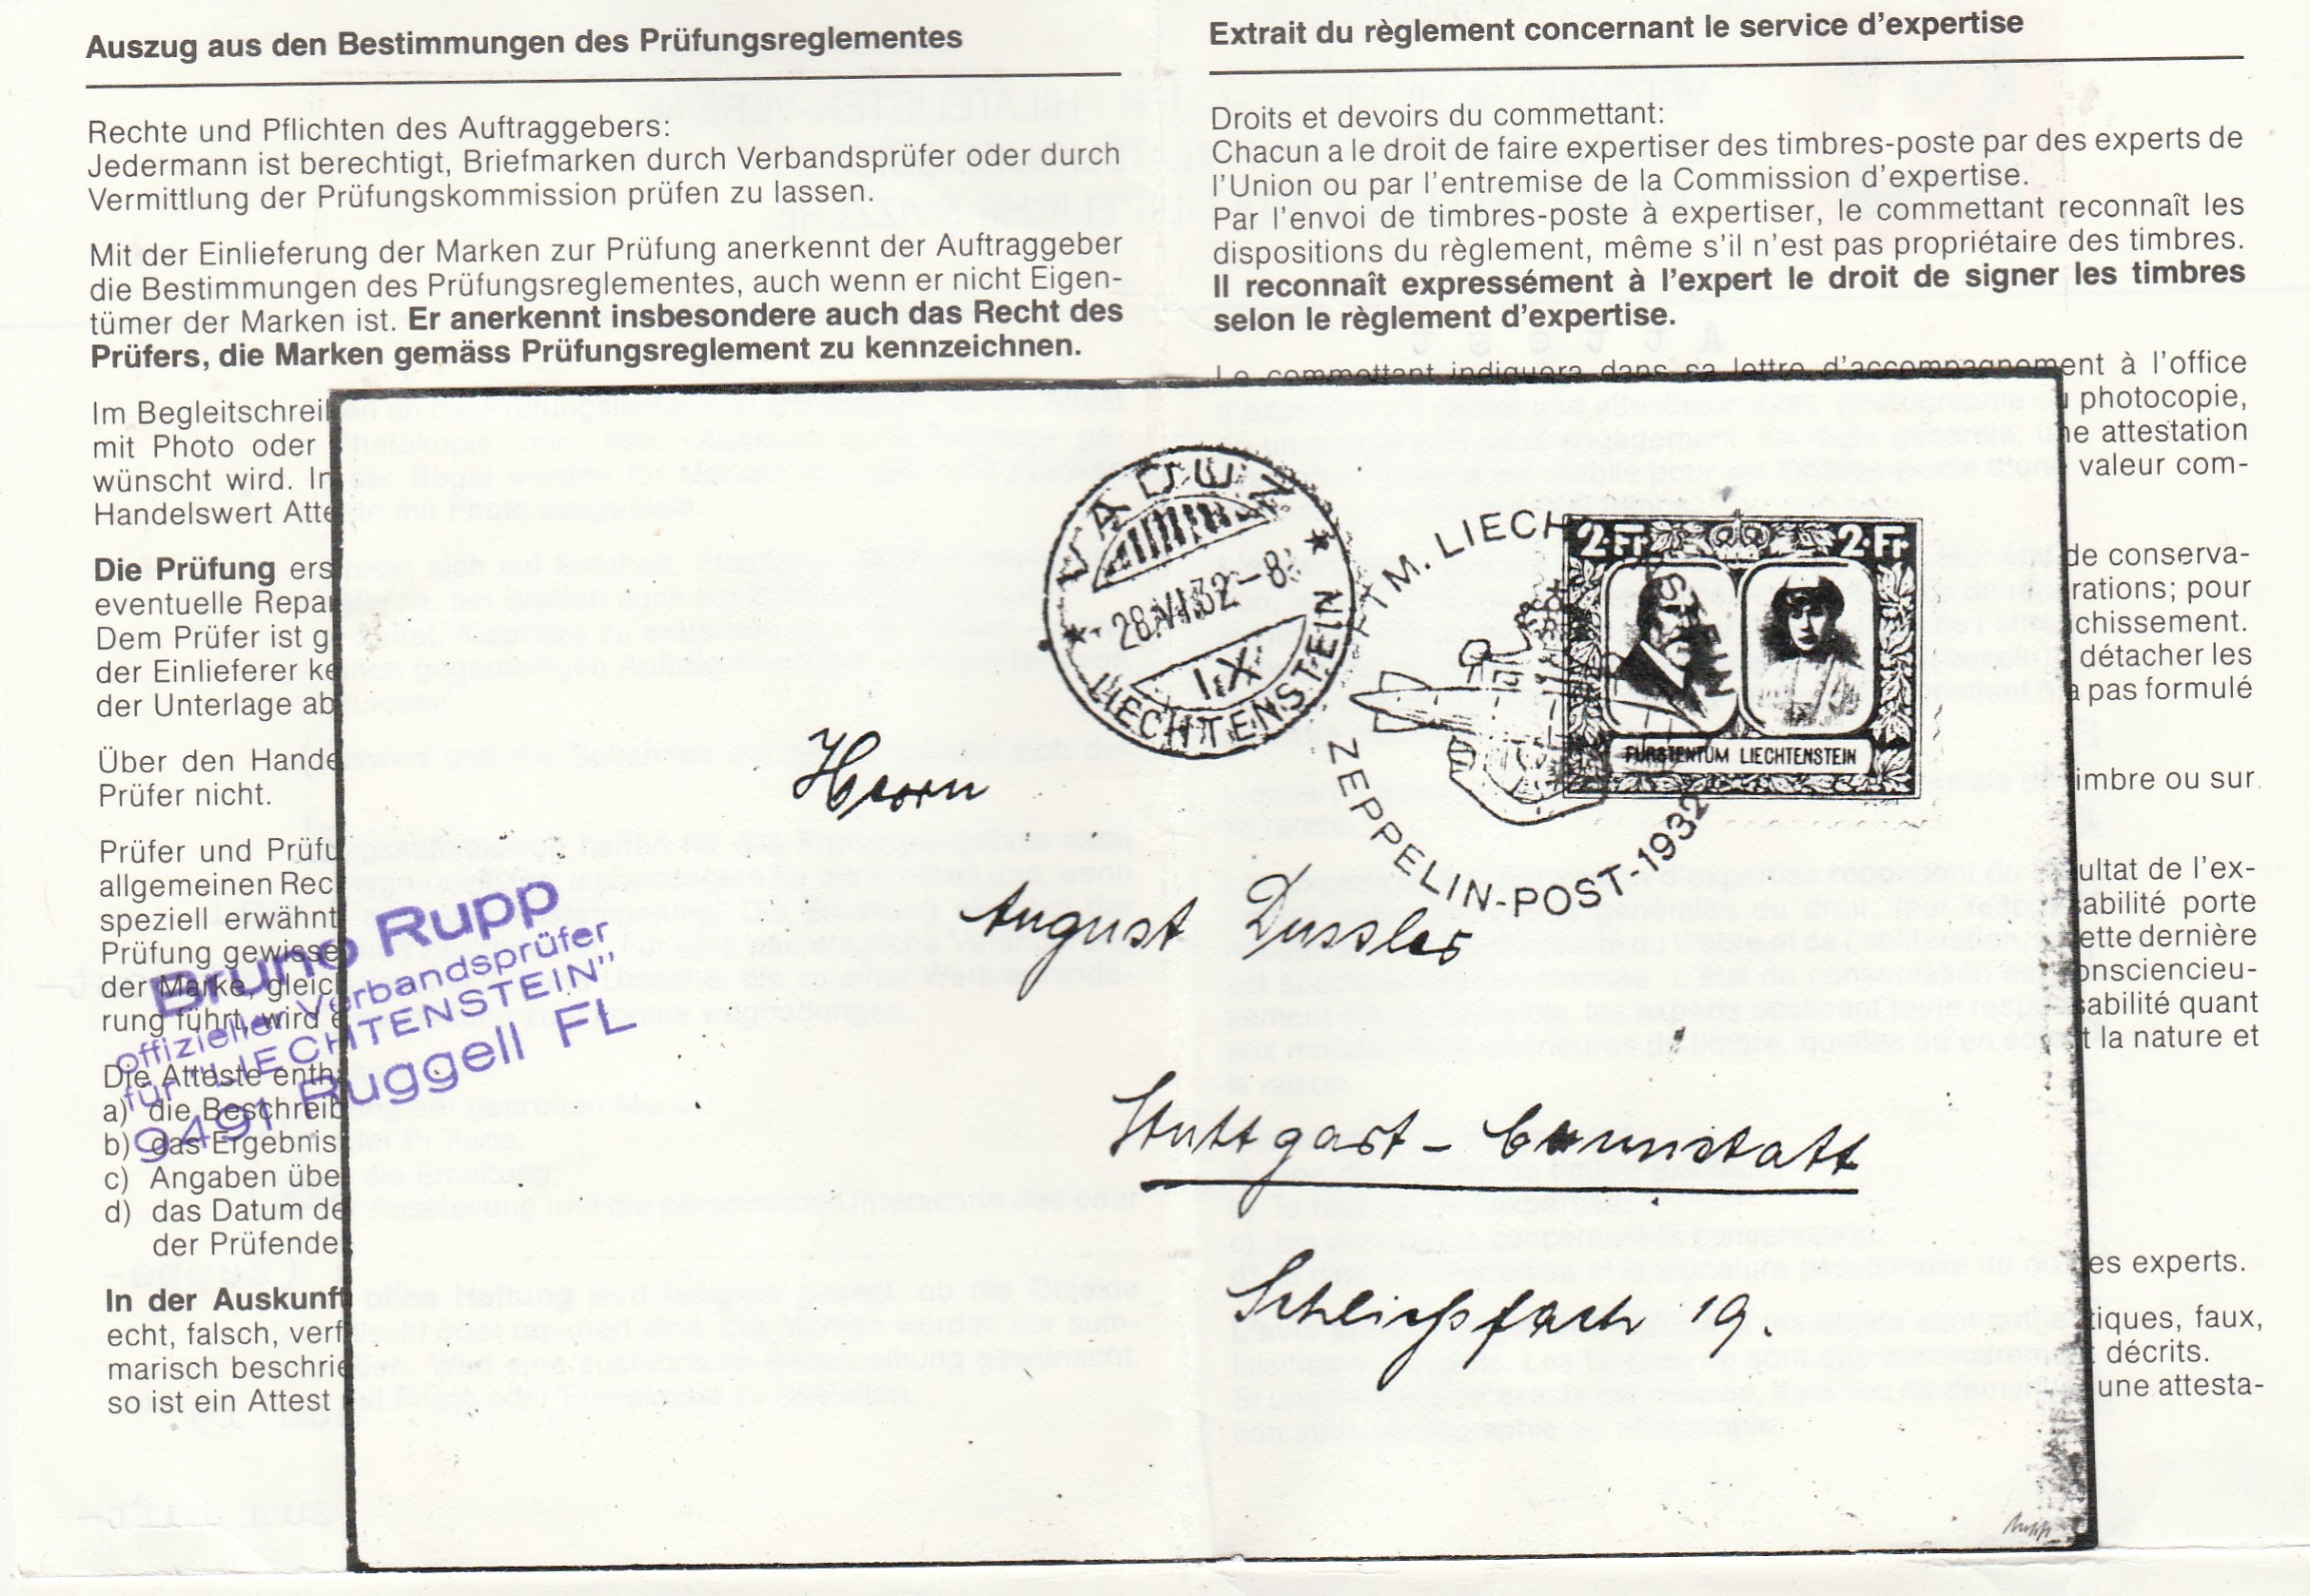 Auszug aus den Bestimmungen des Prüfungsreglementes
Rechte und Pflichten des Auftraggebers:
Jedermann ist berechtigt, Briefmarken durch Verbandsprüfer oder durch
Vermittlung der Prüfungskommission prüfen zu lassen.
Mit der Einlieferung der Marken zur Prüfung anerkennt der Auftraggeber
die Bestimmungen des Prüfungsreglementes, auch wenn er nicht Eigen-
tümer der Marken ist. Er anerkennt insbesondere auch das Recht des
Prüfers, die Marken gemäss Prüfungsreglement zu kennzeichnen.
Im Begleitschreil
mit Photo oder
wünscht wird. In
Handelswert Atte
Die Prüfung ers
eventuelle Repar
Dem Prüfer ist g
der Einlieferer ke
der Unterlage ab
Über den Hande
Prüfer nicht.
Prüfer und Prüfu
allgemeinen Rec
speziell erwähnt
Prüfung gewisse
der Marke, gleic
rung führt, wird e
Die Atteste enth
a) die Beschreib
b) das Ergebnis
c) Angaben übe
d) das Datum de
der Prüfende
In der Auskunft
echt, falsch, verf
marisch beschrie
so ist ein Attest
Bruno Rupp
offizieller Verbandsprüfer
für "LIECHTENSTEIN"
9491 Ruggell FL
Extrait du règlement concernant le service d'expertise
Droits et devoirs du commettant:
Chacun a le droit de faire expertiser des timbres-poste par des experts de
l'Union ou par l'entremise de la Commission d'expertise.
Par l'envoi de timbres-poste à expertiser, le commettant reconnaît les
dispositions du règlement, même s'il n'est pas propriétaire des timbres.
Il reconnaît expressément à l'expert le droit de signer les timbres
selon le règlement d'expertise.
Le commettant indiquera dans sa lettre d'accompagnement à l'office
photocopie,
ne attestation
valeur com-
de conserva-
rations; pour
chissement.
détacher les
a pas formulé
imbre ou sur
ultat de l'ex-
sabilité porte
ette dernière
onsciencieu-
sabilité quant
t la nature et
es experts.
tiques, faux,
décrits.
une attesta-
VADUZ
28.VI.32-8
I.X
LIECHTENSTEIN
LIECH
ZEPPELIN-POST-1932
2·Fr. 2·Fr.
FÜRSTENTUM LIECHTENSTEIN
Herrn
August Dussler
Stuttgart-Cannstatt
19.